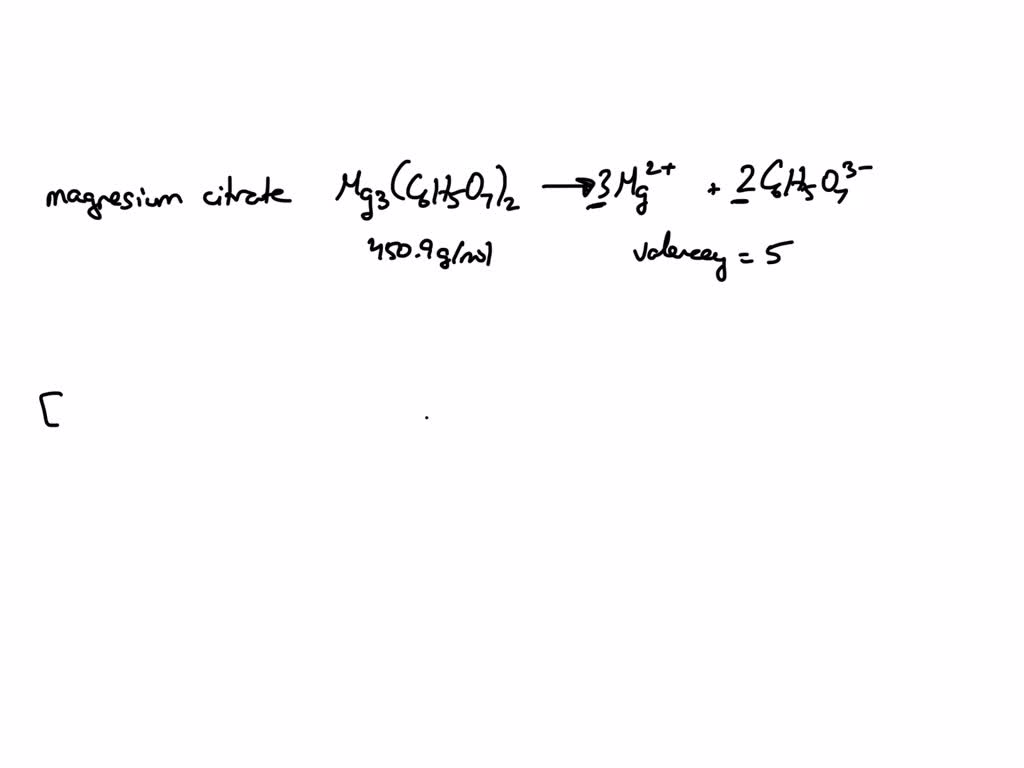 magnesium citrate Mg₃(C₆H₅O₇)₂ → 3Mg²⁺ + 2C₆H₅O₇³⁻
450.9g/mol valencey = 5
[